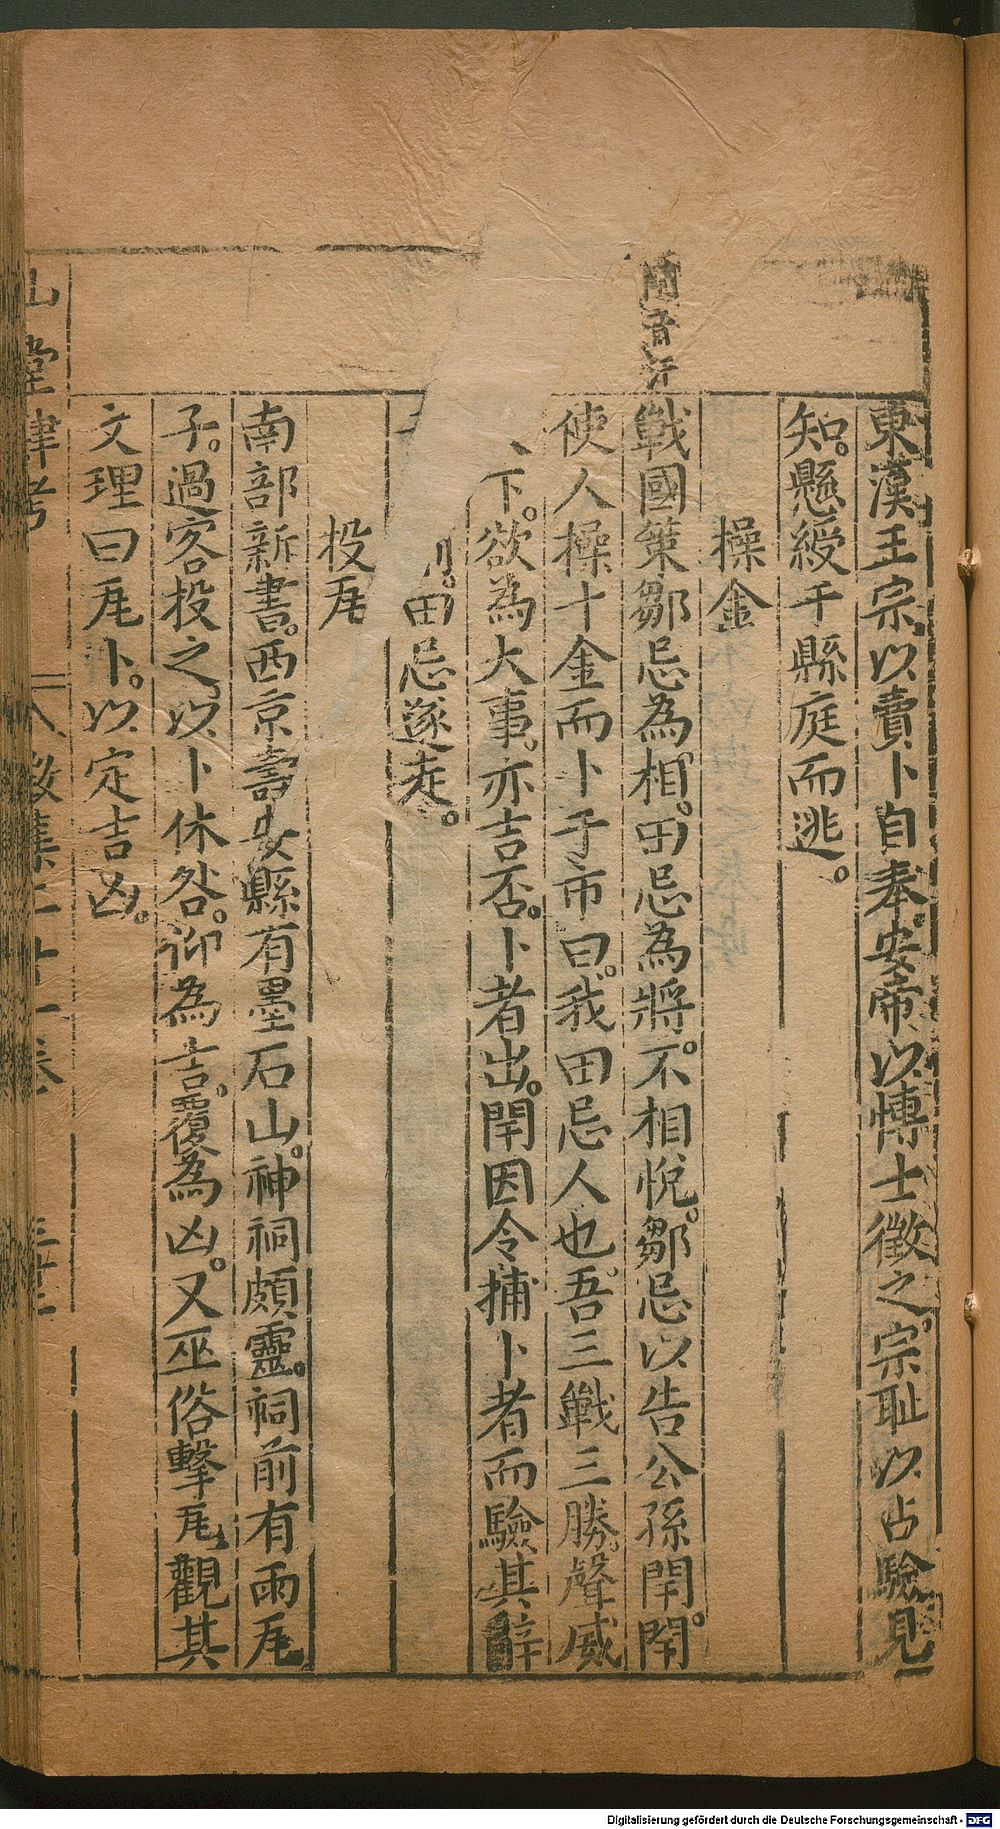 東漢王宗。以賣卜自奉。安帝以博士徵之。宗耻以占驗見
知。懸綬于縣庭而逃。
操金
閈音汗
戰國策鄒忌為相。田忌為將。不相悅。鄒忌以告公孫閈。閈
使人操十金而卜于市曰。我田忌人也。吾三戰三勝。聲威
下。欲為大事。亦吉否。卜者出。閈因令捕卜者而驗其辭
田忌遂走。
投瓦
南部新書。西京壽安縣有墨石山。神祠頗靈。祠前有兩瓦
子。過客投之。以卜休咎。仰為吉。覆為凶。又巫俗擊瓦觀其
文理曰瓦卜。以定吉凶。
山堂肆考
數集二十一卷
Digitalisierung gefördert durch die Deutsche Forschungsgemeinschaft - DFG